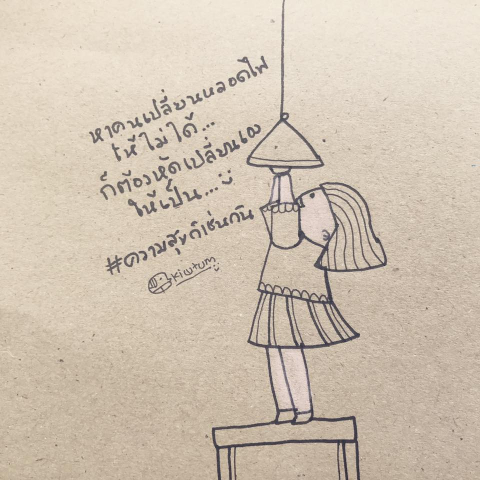 หาคนเปลี่ยนหลอดไฟ
ให้ไม่ได้...
ก็ต้องหัดเปลี่ยนเอง
ให้เป็น...
#ความสุขก็เช่นกัน
kiwtum